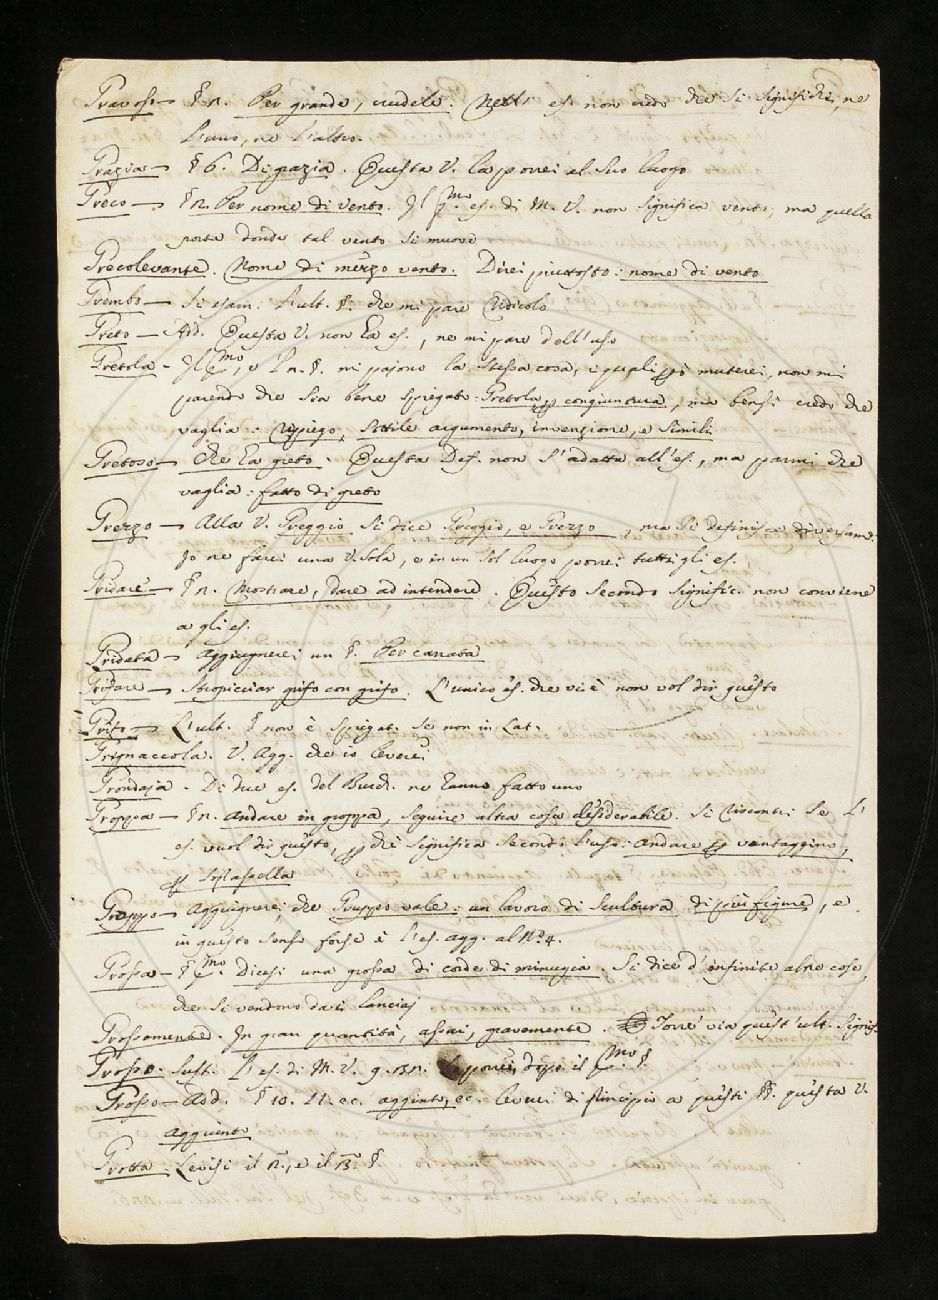 Gravoso — § n. Per grande, crudele. Nell' es. non credo che si significhi, ne
l'uno, ne l'altro.
Grazia — § 6. Di grazia. Questa V. la porrei al suo luogo
Greco — § n. Per nome di vento. Il p.mo es. di M. V. non significa vento, ma quella
parte donde tal vento si muove
Grecolevante. Nome di mezzo vento. Direi piuttosto: nome di vento
Grembo — Si esam. l'ult. §. che mi pare ridicolo
Greto — Add. Questa V. non ha es., ne mi pare dell'uso
Gretola - Il p.mo, e l' n. §. mi pajono la stessa cosa, i quali però muterei, non mi
parendo che sia bene spiegato Gretola p congiuntura, ma bensì credo che
vaglia: Ripiego, sottile argumento, invenzione, e simili
Gretoso — Che ha greto. Questa Def. non s'adatta all'es., ma parmi che
vaglia: fatto di greto
Grezzo — Alla V. Greggio si dice Greggio, e Grezzo, ma si definisce diversame.
Io ne farei una V. sola, e in un sol luogo porrei tutti gli es.
Gridare — § n. Mostrare, dare ad intendere. Questo secondo signific. non conviene
a gli es.
Gridata — Aggiugnerei un §. Per canata
Grifare — Stropicciar grifo con grifo. L'unico es. che vi è non vol dir questo
Grito — L'ult. § non è spiegat. se non in Lat.
Grignaccola. V. Agg. che io leverei
Grondaja - Di due es. del Burch. ne hanno fatto uno
Groppa — § n. Andare in groppa, seguire altra cosa desiderabile. Si riscontri se l'
es. vuol dir questo, p che significa secondo l'uso: andare p vantaggino,
p
Groppo — Aggiugnerei, che Gruppo vale: un lavoro di scultura di più figure, e
in questo senso forse è l'es. agg. al N.o 4.
Grossa — § p.mo Dicesi una grossa di corde di minugia. Si dice d'infinite altre cose,
che si vendono da i lanciaj
Grossamente. In gran quantità, assai, gravemente. Torrei via quest'ult. signif.
Grosso. Sust. L'es. di M. V. 9. porrei dopo il p.mo §.
Grosso — Add. § 10. 11. ec. aggiunto, ec. Leverei di principio a questi §§. questa V.
aggiunto
Grotta. Levisi il e il §